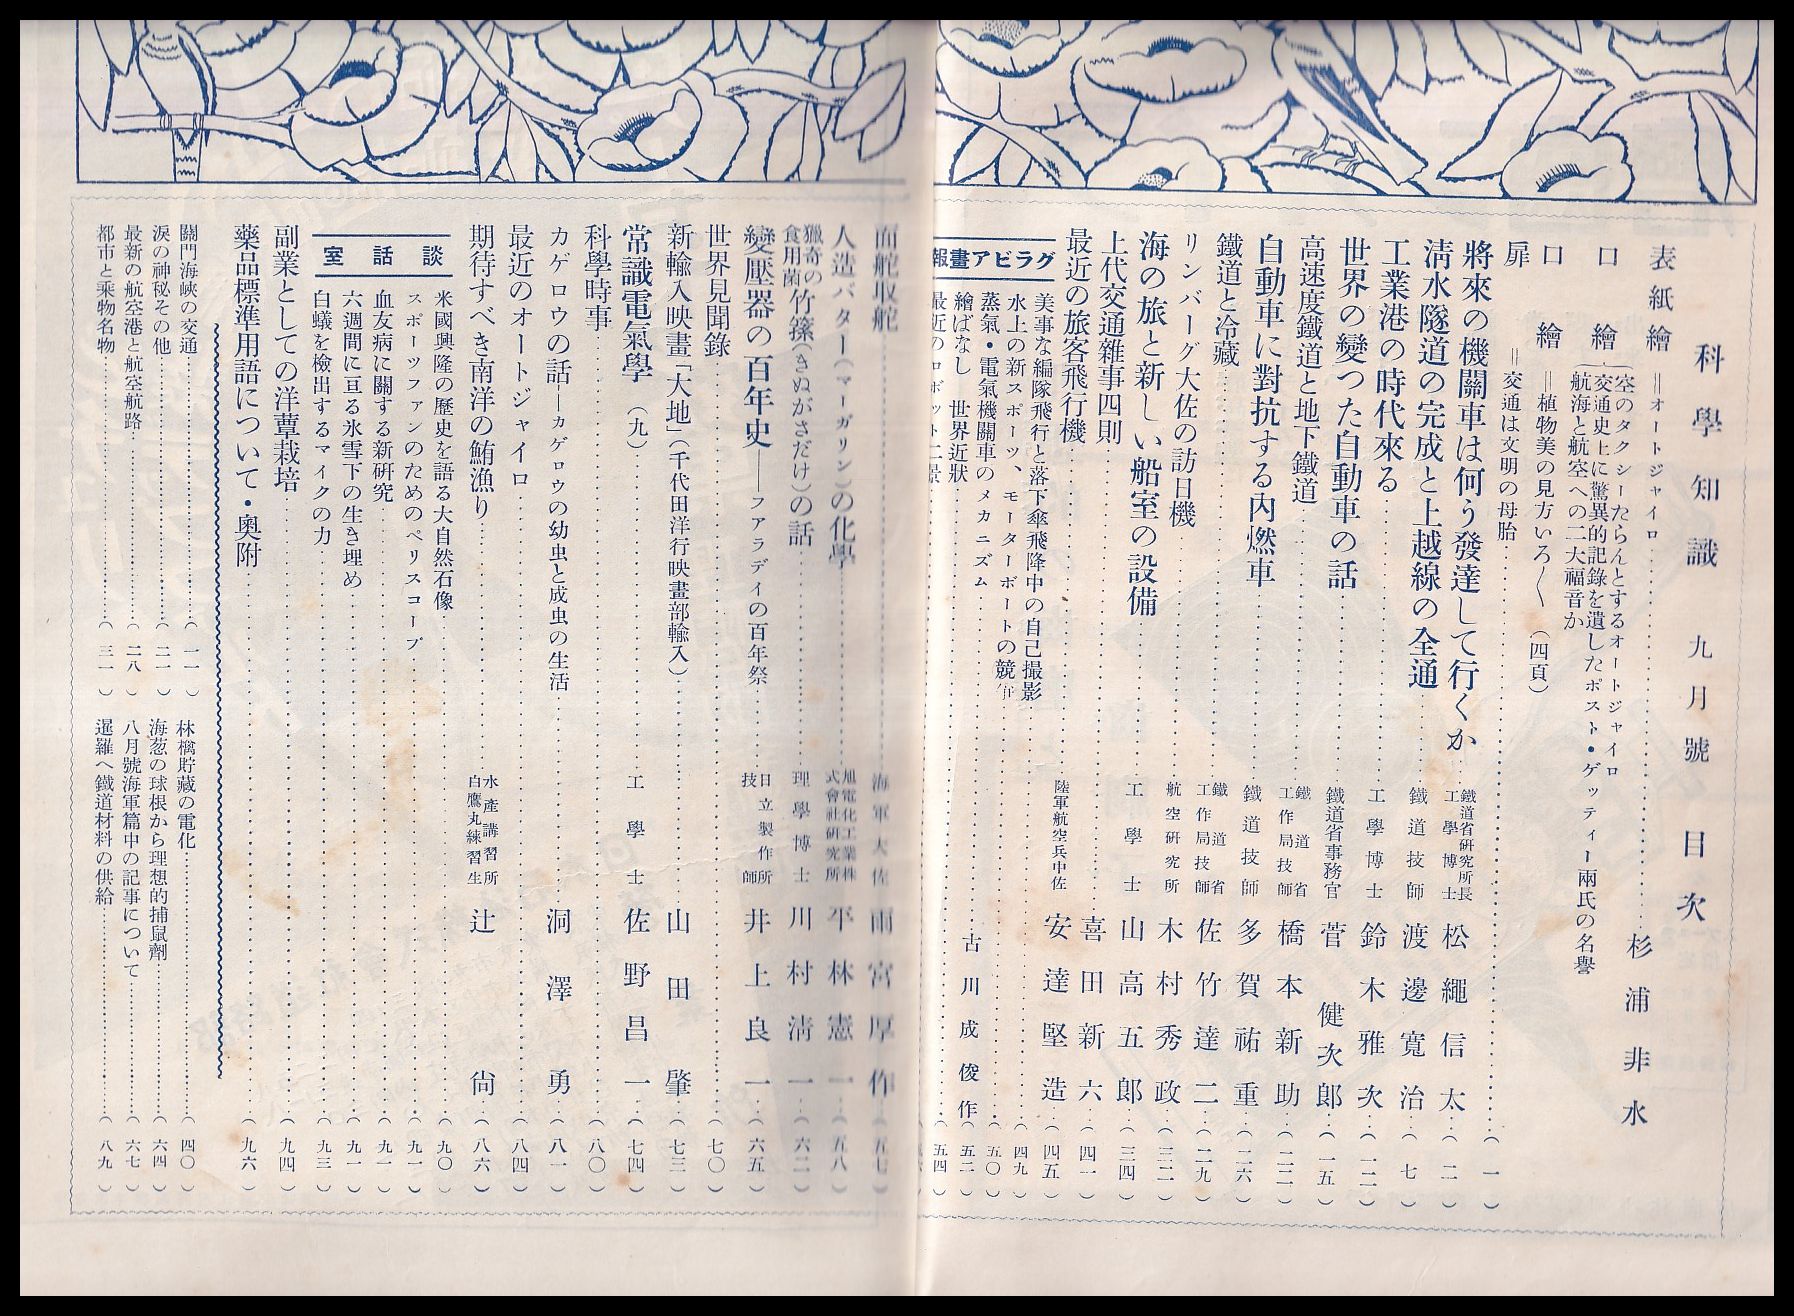 科學知識 九月號 目次
表紙繪=オートジャイロ……杉浦非水
口繪
(空のタクシーたらんとするオートジャイロ
交通史上に驚異的記録を遺したポスト・ゲッティー兩氏の名譽
航海と航空への二大福音か
口繪=植物美の見方いろ〱(四頁)
扉=交通は文明の母胎……(一)
將來の機關車は何う發達して行くか……鐵道省研究所長 工學博士 松繩信太……(二)
淸水隧道の完成と上越線の全通……鐵道技師 渡邊寬治……(七)
工業港の時代來る……工學博士 鈴木雅次……(一二)
世界の變つた自動車の話……鐵道省事務官 菅健次郎……(一五)
高速度鐵道と地下鐵道……鐵道省工作局技師 橋本新助……(二二)
自動車に對抗する內燃車……鐵道技師 多賀祐重……(二六)
鐵道と冷藏……鐵道省工作局技師 佐竹達二……(二九)
リンバーグ大佐の訪日機……航空研究所 木村秀政……(三二)
海の旅と新しい船室の設備……工學士 山高五郎……(三四)
上代交通雜事四則……喜田新六……(四一)
最近の旅客飛行機……陸軍航空兵中佐 安達堅造……(四五)
グラビア畫報
美事な編隊飛行と落下傘飛降中の自己撮影……(四九)
水上の新スポーツ、モーターボートの競爭……(五〇)
蒸氣・電氣機關車のメカニズム……古川成俊作……(五二)
繪ばなし 世界近狀……(五四)
最近のロボット二景
面舵取舵……海軍大佐 雨宮厚作……(五七)
人造バター(マーガリン)の化學……旭電化工業株式會社研究所 平林憲一……(五八)
獵奇の食用菌 竹蓀(きぬがさだけ)の話……理學博士 川村淸一……(六二)
變壓器の百年史―ファラデイの百年祭……日立製作所技師 井上良一……(六五)
世界見聞錄……(七〇)
新輸入映畫「大地」(千代田洋行映畫部輸入)……山田肇……(七三)
常識電氣學(九)……工學士 佐野昌一……(七四)
科學時事……(八〇)
カゲロウの話―カゲロウの幼虫と成虫の生活……洞澤勇……(八一)
最近のオートジャイロ……(八四)
期待すべき南洋の鮪漁り……水產講習所白鷹丸練習生 辻尙……(八六)
談話室
米國興隆の歷史を語る大自然石像……(九〇)
スポーツファンのためのペリスコープ……(九一)
血友病に關する新硏究……(九一)
六週間に亘る氷雪下の生き埋め……(九一)
白蟻を檢出するマイクの力……(九三)
副業としての洋蕈栽培……(九四)
藥品標準用語について・奧附……(九六)
關門海峽の交通……(一一)
林檎貯藏の電化……(四〇)
淚の神秘その他……(二一)
海葱の球根から理想的捕鼠劑……(六四)
最新の航空港と航空航路……(二八)
八月號海軍篇中の記事について……(六七)
都市と乘物名物……(三一)
暹羅へ鐵道材料の供給……(八九)